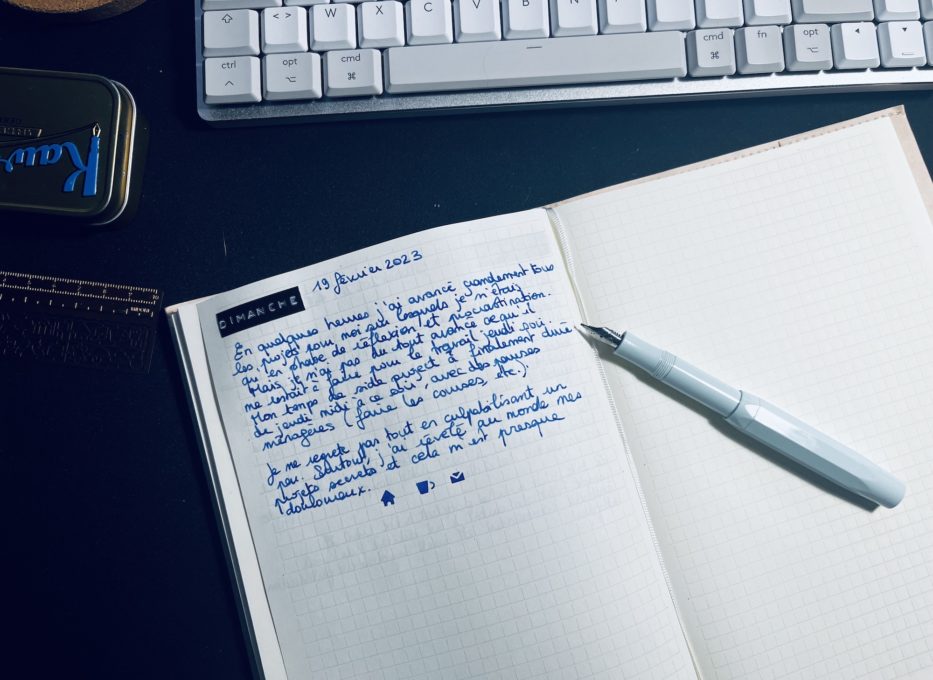 < > W X C V B N
ctrl opt cmd cmd fn opt
Kaw
19 février 2023
DIMANCHE
En quelques heures j'ai avancé grandement tous
les projets pour moi sur lesquels je n'étais
qu'en phase de réflexion et procrastination.
Mais je n'ai pas du tout avancé ce qu'il
me restait à faire pour le travail jeudi soir.
Mon temps de side project à finalement duré
du jeudi midi à ce soir, avec des pauses
ménagères (faire les courses, etc.).
Je ne regrete pas tout en culpabilisant un
peu. Surtout, j'ai révélé au monde mes
projets secrets et cela m'est presque
douloureux.